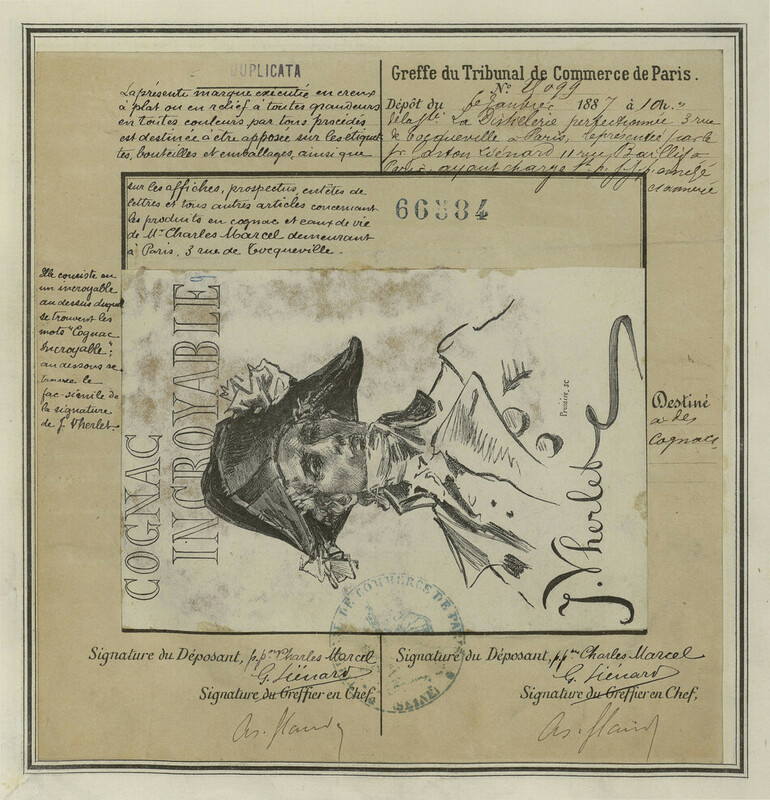 DUPLICATA
La présente marque exécutée en creux
à plat ou en relief à toutes grandeurs
en toutes couleurs par tous procédés
est destinée à être apposée sur les étiquet-
tes, bouteilles et emballages, ainsi que
sur les affiches, prospectus, entêtes de
lettres et tous autres articles concernant
les produits en cognac et eaux de vie
de Mr Charles Marcel demeurant
à Paris, 3 rue de Tocqueville.
Greffe du Tribunal de Commerce de Paris.
Dépôt du 6 Janvier 1887 à 10h.
La Distillerie perfectionnée 3 rue
de Tocqueville à Paris, représentée par le
Sr Liénard 11 rue
Paris, ayant charge
66384
Elle consiste en
un incroyable
au dessus duquel
se trouvent les
mots "Cognac
Incroyable";
au dessous se
trouve le
fac-simile de
la signature
de J. Vherlet.
COGNAC
INCROYABLE
J. Vherlet
Destiné
à des
cognacs
DE COMMERCE DE
SEINE
Signature du Déposant, p.pon Charles Marcel
G. Liénard
Signature du Greffier en Chef,
Signature du Déposant, p.pon Charles Marcel
G. Liénard
Signature du Greffier en Chef,